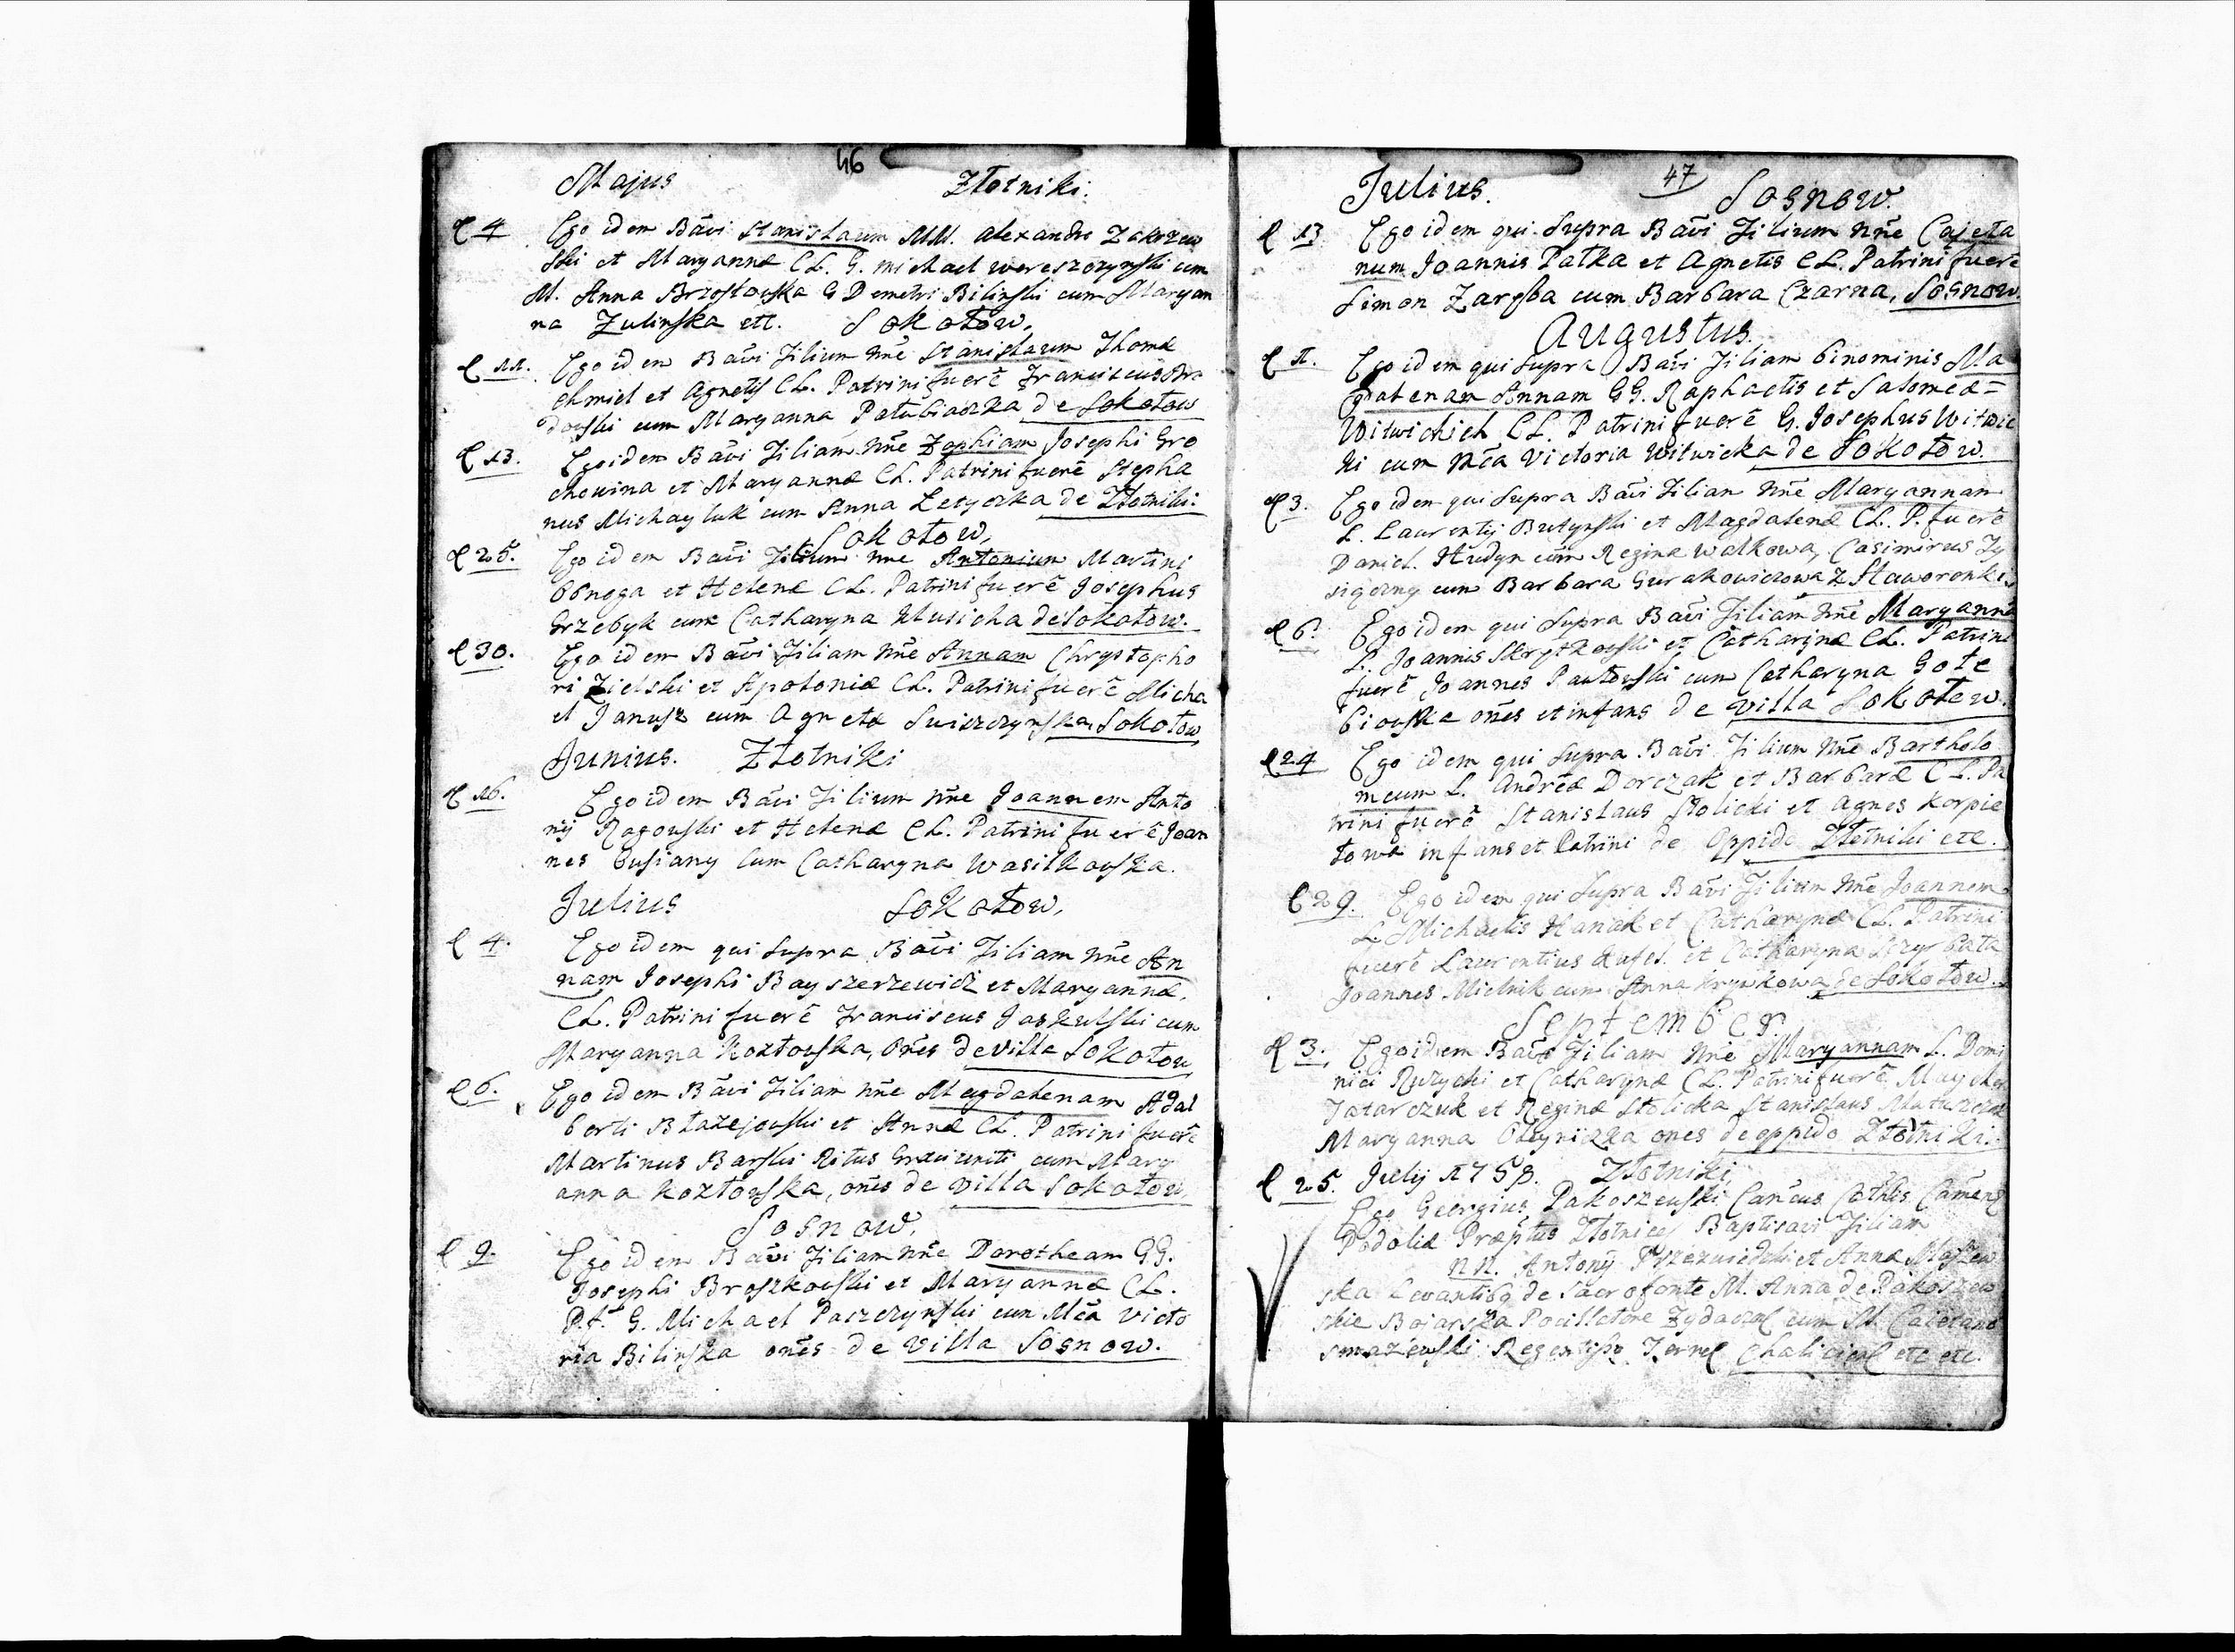 46
Majus Złotniki.
D 4 Ego idem Bãvi Stanislaum MM. Alexandri Zakrzew
ski et Maryannæ CL. G. Michael Wereszczynski cum
M. Anna Brzostowska G Demetri Bilinski cum Maryan
na Zulinska ett. Sokołow.
D 11. Ego idem Bavi Filium Nñe Stanislaum Thomæ
Chmiel et Agnetis CL. Patrini fuerẽ Franciscus
cum Maryanna de Sokołow
D 13. Ego idem Bavi Filiam Nñe Zophiam Josephi Gro
chowina et Maryannæ CL. Patrini fuerẽ Stepha
nus Michayluk cum Anna de Złotniki.
Sokołow.
D 25. Ego idem Bãvi Filium Nñe Antonium Martini
et Helenæ CL. Patrini fuerẽ Josephus
Grzebyk cum Catharyna Musicha de Sokołow.
D 30. Ego idem Bãvi Filiam Nñe Annam Chrystopho
ri Zielski et Apoloniæ CL. Patrini fuerẽ Micha
el Janusz cum Agneta Swiszczynska Sokołow
Junius. Złotniki
D 16. Ego idem Bãvi Filium Nñe Joannem Anto
nij Rogowski et Helenæ CL. Patrini fuerẽ Joan
nes cum Catharyna Wasilkowska.
Julius Sokołow.
D 4. Ego idem qui Supra Bãvi Filiam Nñe An
nam Josephi Bayszerzewicz et Maryannæ.
CL. Patrini fuerẽ Franciscus Jaskulski cum
Maryanna Kozłowska, Oñes de Villa Sokołow
D 6. Ego idem Bãvi Filiam Nñe Magdalenam Adal
berti Błazejowski et Annæ CL. Patrini fuerẽ
Martinus Barski Ritus Græci uniti cum Mary
anna Kozłowska, oñes de Villa Sokołow.
Sosnow.
D 9. Ego idem Bãvi Filiam Nñe Dorotheam GG.
Josephi Broszkowski et Maryannæ CL.
P.f. G. Michael Paszczynski cum Mča Victo
ria Bilinska oñes de Villa Sosnow.
47
Julius. Sosnow.
D 13 Ego idem qui Supra Bãvi Filium Nñe Cajeta
num Joannis Pałka et Agnetis CL. Patrini fuerẽ
Simon Zaręba cum Barbara Czarna, Sosnow.
Augustus.
D 1. Ego idem qui Supra Bãvi Filiam binominis Ma
gdalenam Annam GG. Raphaelis et Salomeæ=
Witwickich CL. Patrini fuerẽ G. Josephus Witwic
ki cum Mča Victoria Witwicka de Sokołow.
D 3. Ego idem qui Supra Bãvi Filiam Nñe Maryannam
L. Laurentij Butynski et Magdalenæ CL. P. fuerẽ
Daniel Hudyn cum Regina Walkowa, Casimirus
cum Barbara Gurakowiczowa z Staworonki.
D 6. Ego idem qui Supra Bãvi Filiam Nñe Maryannã
L. Joannis Skrytkowski et Catharinæ CL. Patrini
fuerẽ Joannes Pawłowski cum Catharyna Gołe
biowska oñes et infans de Villa Sokołow.
D 24 Ego idem qui Supra Bãvi Filium Nñe Bartholo
meum L. Andreæ Dorczak et Barbaræ CL. Pa
trini fuerẽ Stanislaus Stolicki et Agnes Korpie
łowa infans et Patrini de Oppido Złotniki etc.
D 29. Ego idem qui Supra Bãvi Filium Nñe Joannem
L. Michaelis Haniak et Catharynæ CL. Patrini
fuerẽ Laurentius et Catharyna Szczyrbata
Joannes Mielnik cum Anna Krywkowa de Sokołow.
September.
D 3. Ego idem Bãvi Filiam Nñe Maryannam L. Domi
nici Ruzycki et Catharynæ CL. Patrini fuerẽ
Tatarczuk et Reginæ Stolicka Stanislaus
Maryanna Oleyniczka oñes de oppido Złotniki.
D 25. Julij 1758. Złotniki,
Ego Georgius Pakoszewski Cañcus Cathlis Camenę
Podoliæ Præptus Złotnicę Baptisavi Filiam
NN. Antonij et Annæ
ska Levantibg de Sacro fonte M. Anna de Pakoszew
skie Bojarska Pocillatore Zydaczoę cum M. Caietano
Regentispo Terreę Chaliciens etc etc.